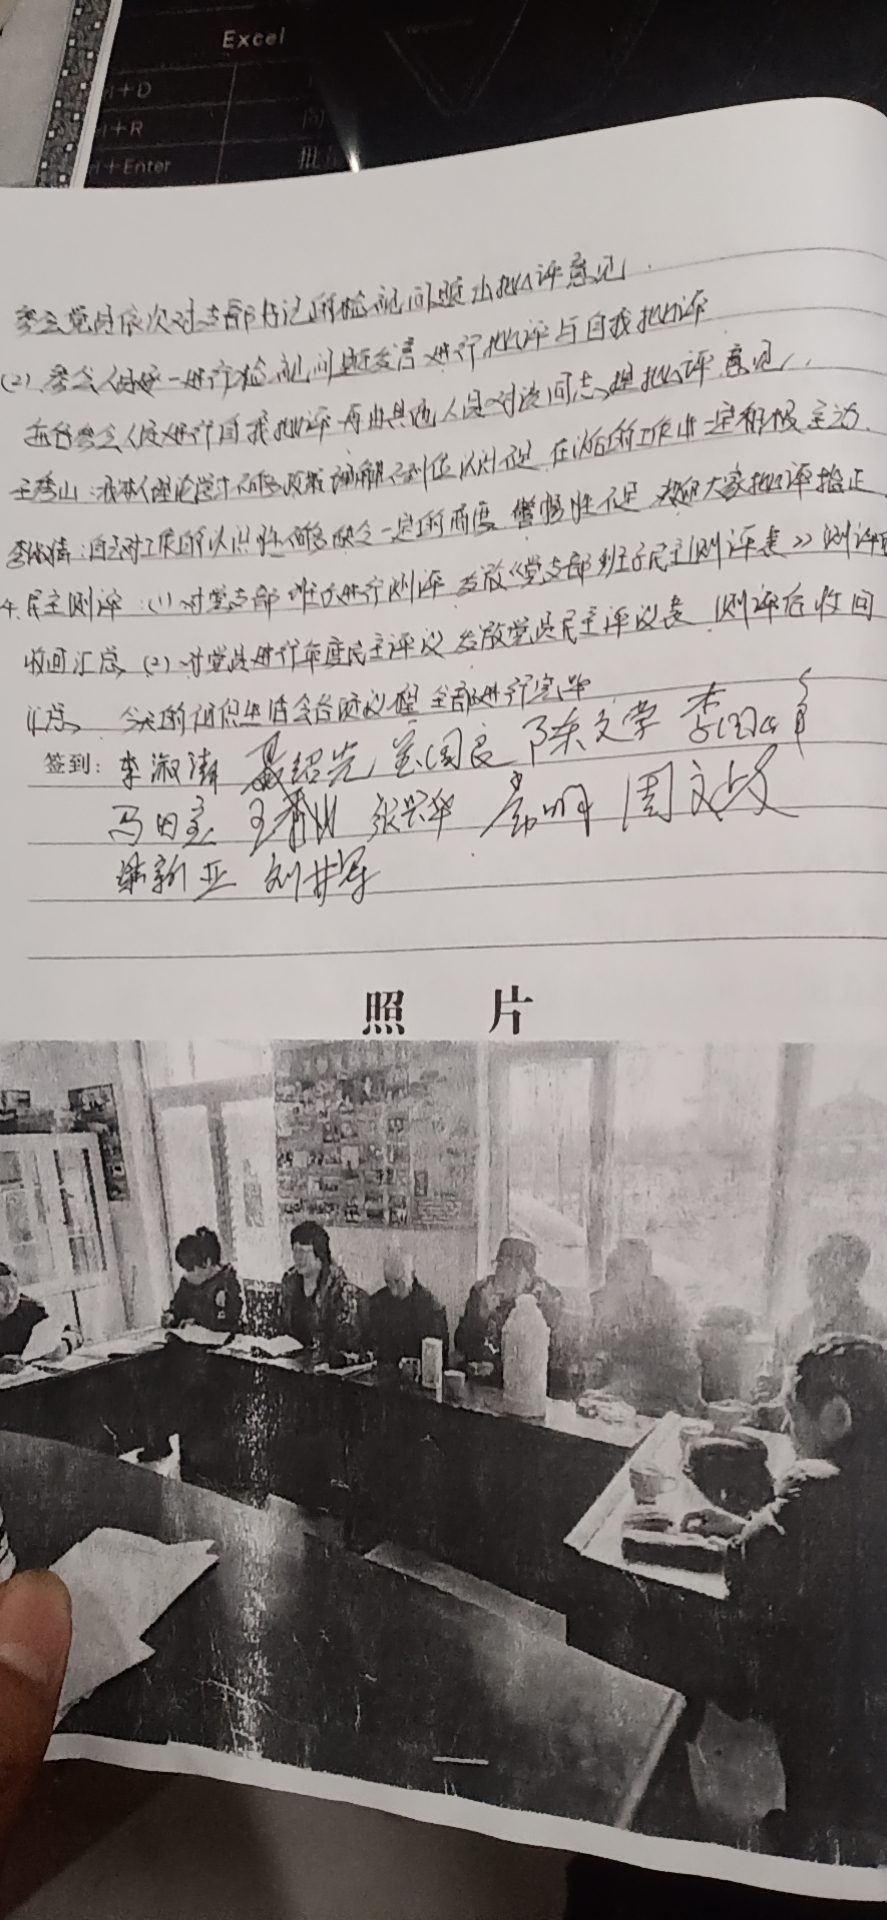 Excel
+D
+R
+Enter
参会党员依次对支部书记的检视问题出批评意见.
(2).参会人员逐一进行检视问题发言 进行批评与自我批评
在台参会人员进行自我批评 再由其他人员对该同志提批评意见,.
王秀山:我本人理论学习不够 理解不到位 认识不足 在以后的工作中一定积极主动.
自己对工作的认识性不够 缺乏一定的高度 警惕性不足 大家批评指正
4.民主测评 (1).对党支部班子进行测评 发放《党支部班子民主测评表》测评
收回汇总 (2).对党员进行年度民主评议 发放党员民主评议表 测评后收回
汇总. 今天的组织生活会各项议程全部进行完毕
签到: 李淑清 聂绍先 国良 陈文学 李
马田 王秀山 张兴华 周文
新亚 刘井军
照 片